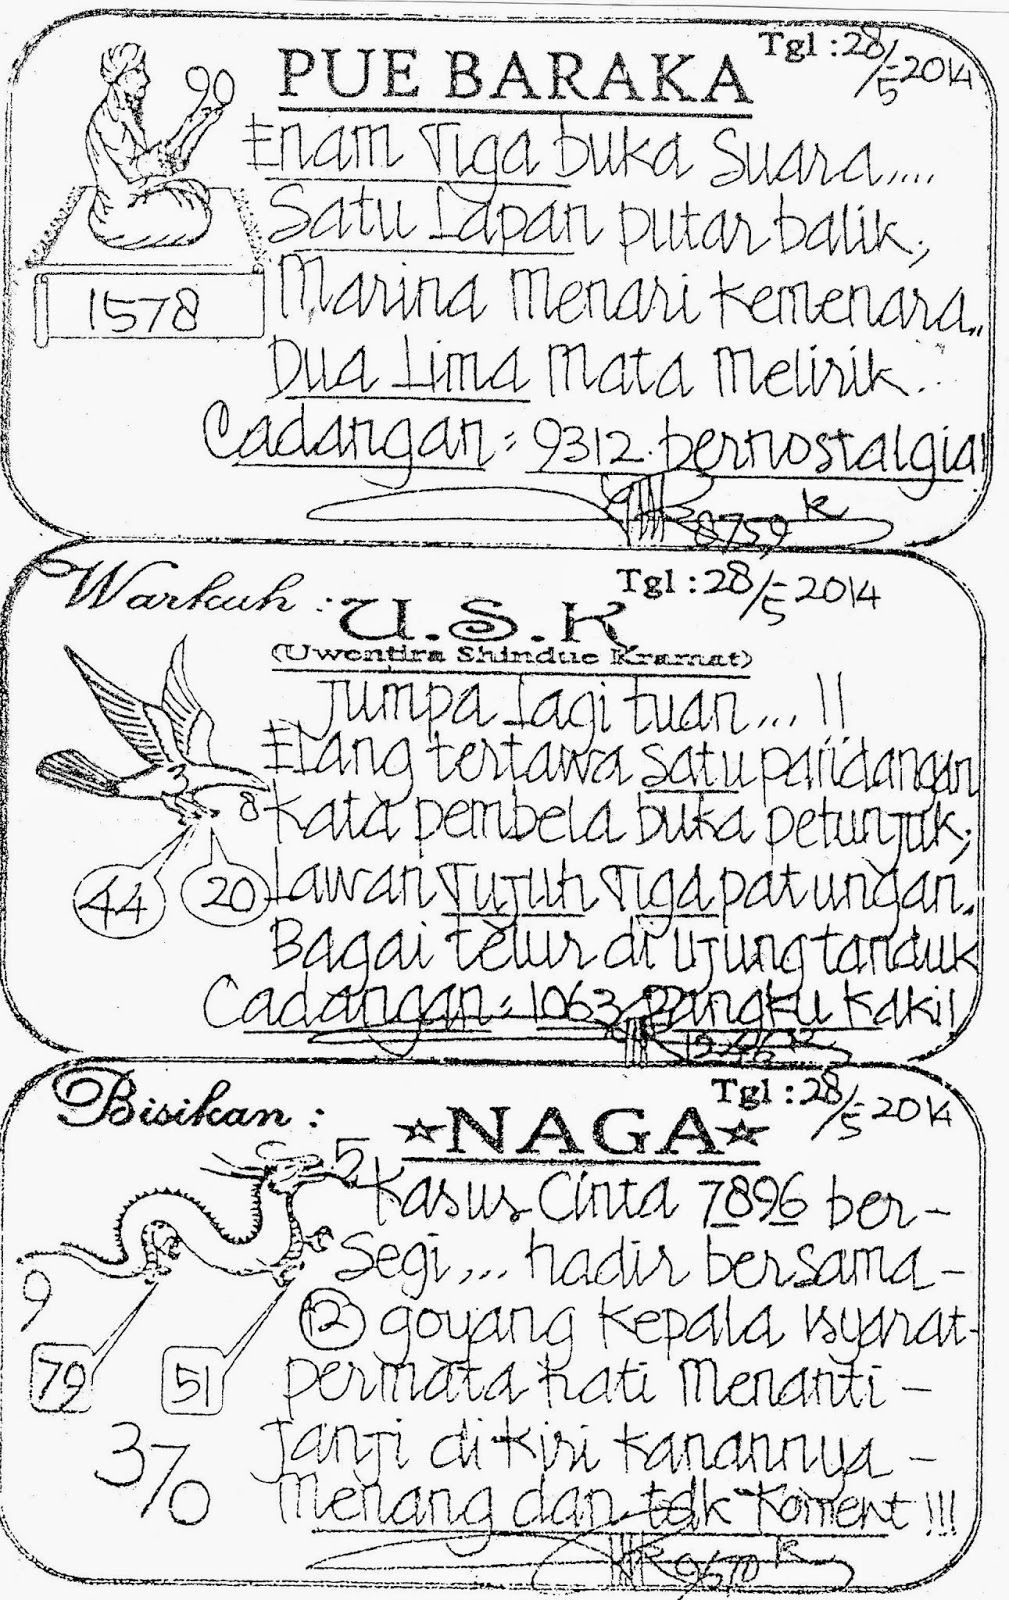 Tgl : 28/5-2014
PUE BARAKA
90
Enam Tiga buka Suara....
Satu Lapan putar balik;
1578
Marina Menari kemenara..
Dua Lima Mata Melirik..
Cadangan = 9312. bernostalgia!
8759 k
Warkuh : U.S.K
Tgl : 28/5-2014
(Uwentira Shindue Kramat)
Jumpa Lagi tuan...!!
Elang tertawa satu pandangan
8
Kata pembela buka petunjuk;
44 20
Lawan Tujuh Tiga patungan.
Bagai telur di ujung tanduk
Cadangan = 1063 Pangku Kaki!
Bisikan :
Tgl : 28/5-2014
NAGA
5
Kasus Cinta 7896 ber-
Segi... hadir bersama-
9
12 goyang kepala isyarat-
79 51
permata hati Menanti-
370
Janji di kiri kanannya-
Menang dan tdk koment!!!
9670 k